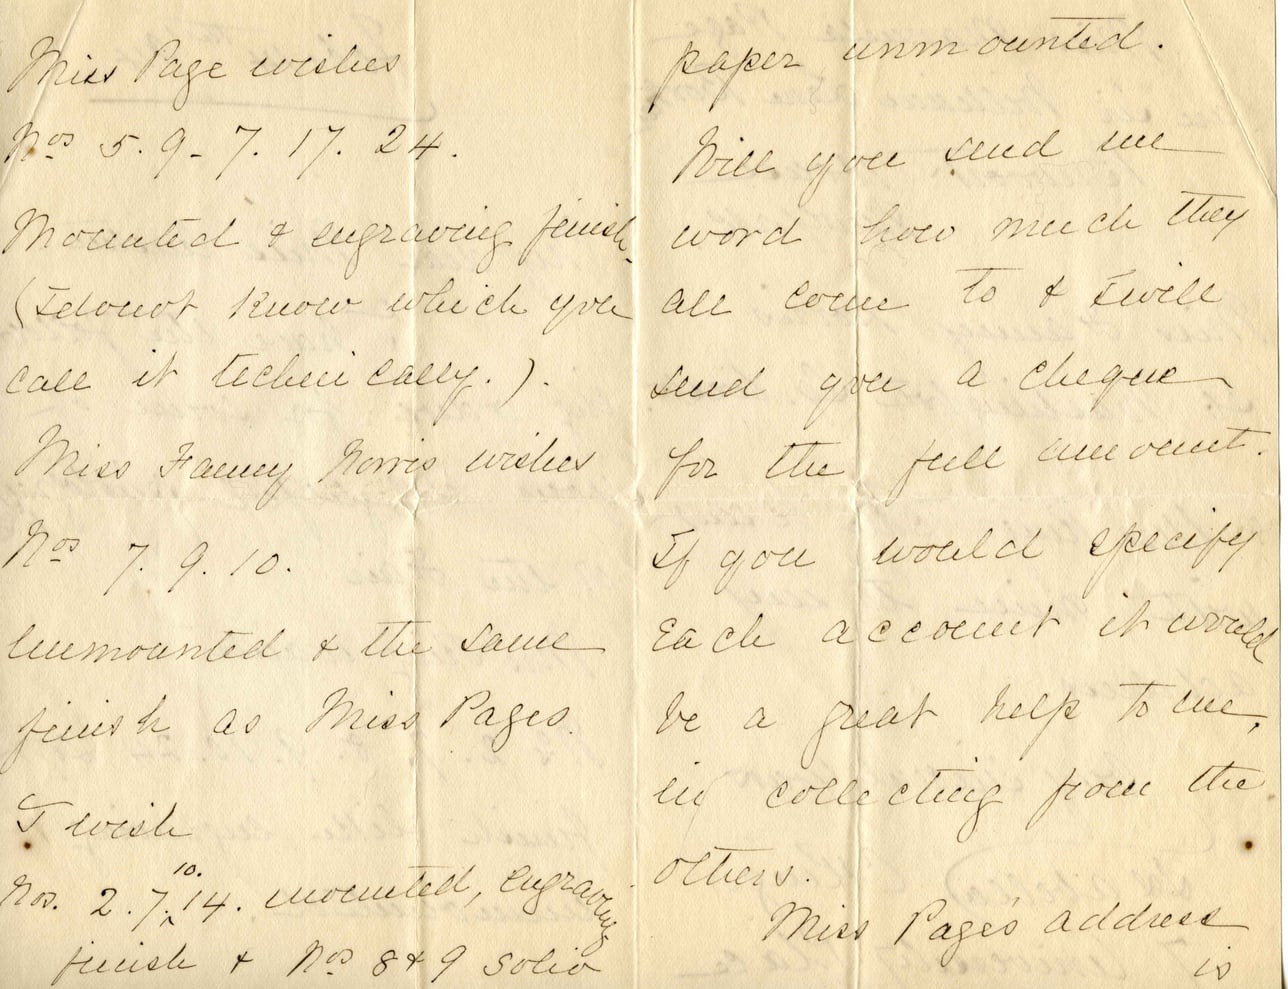 Miss Page wishes
Nos 5. 9- 7. 17. 24.
Mounted & engraving finish
(I do not know which you
call it technically.).
Miss Fanny Norris wishes
Nos 7. 9. 10.
Unmounted & the same
finish as Miss Pages.
I wish
Nos. 2. 7. 10. 14. mounted, engraving
finish & Nos 8 & 9 solio
paper unmounted.
Will you send me
word how much they
all come to & I will
send you a cheque
for the full amount.
If you would specify
each account it would
be a great help to me,
in collecting from the
others.
Miss Page's address
is